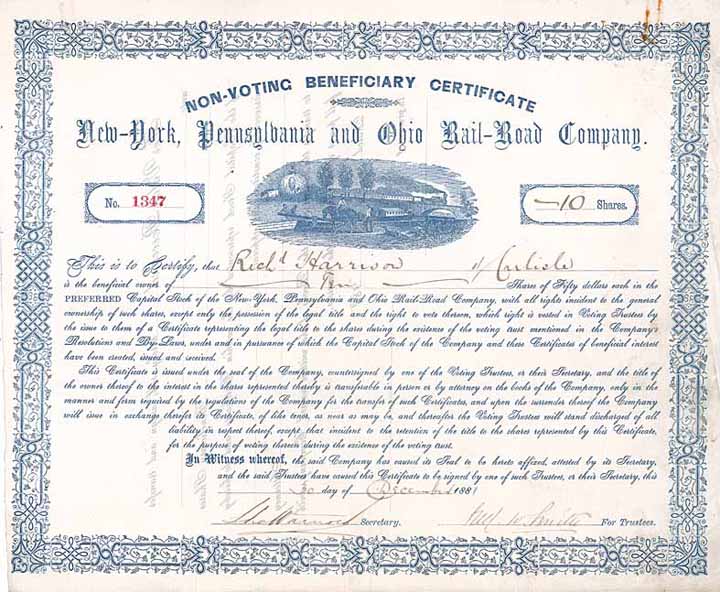 NON-VOTING BENEFICIARY CERTIFICATE
New-York, Pennsylvania and Ohio Rail-Road Company.
No. 1347
10 Shares.
This is to Certify, that Richd Harrison of Carlisle
is the beneficial owner of Ten Shares of Fifty dollars each in the
PREFERRED Capital Stock of the New-York, Pennsylvania and Ohio Rail-Road Company, with all rights incident to the general
ownership of such shares, except only the possession of the legal title and the right to vote thereon, which right is vested in Voting Trustees by
the issue to them of a Certificate representing the legal title to the shares during the existence of the voting trust mentioned in the Company's
Resolutions and By-Laws, under and in pursuance of which the Capital Stock of the Company and these Certificates of beneficial interest
have been created, issued and received.
This Certificate is issued under the seal of the Company, countersigned by one of the Voting Trustees, or their Secretary, and the title of
the owner thereof to the interest in the shares represented thereby is transferable in person or by attorney on the books of the Company, only in the
manner and form required by the regulations of the Company for the transfer of such Certificates, and upon the surrender thereof the Company
will issue in exchange therefor its Certificate, of like tenor, as near as may be, and thereafter the Voting Trustees will stand discharged of all
liability in respect thereof, except that incident to the retention of the title to the shares represented by this Certificate,
for the purpose of voting thereon during the existence of the voting trust.
In Witness whereof, the said Company has caused its Seal to be hereto affixed, attested by its Secretary,
and the said Trustees have caused this Certificate to be signed by one of such Trustees, or their Secretary, this
30 day of December 1881
Secretary. For Trustees.